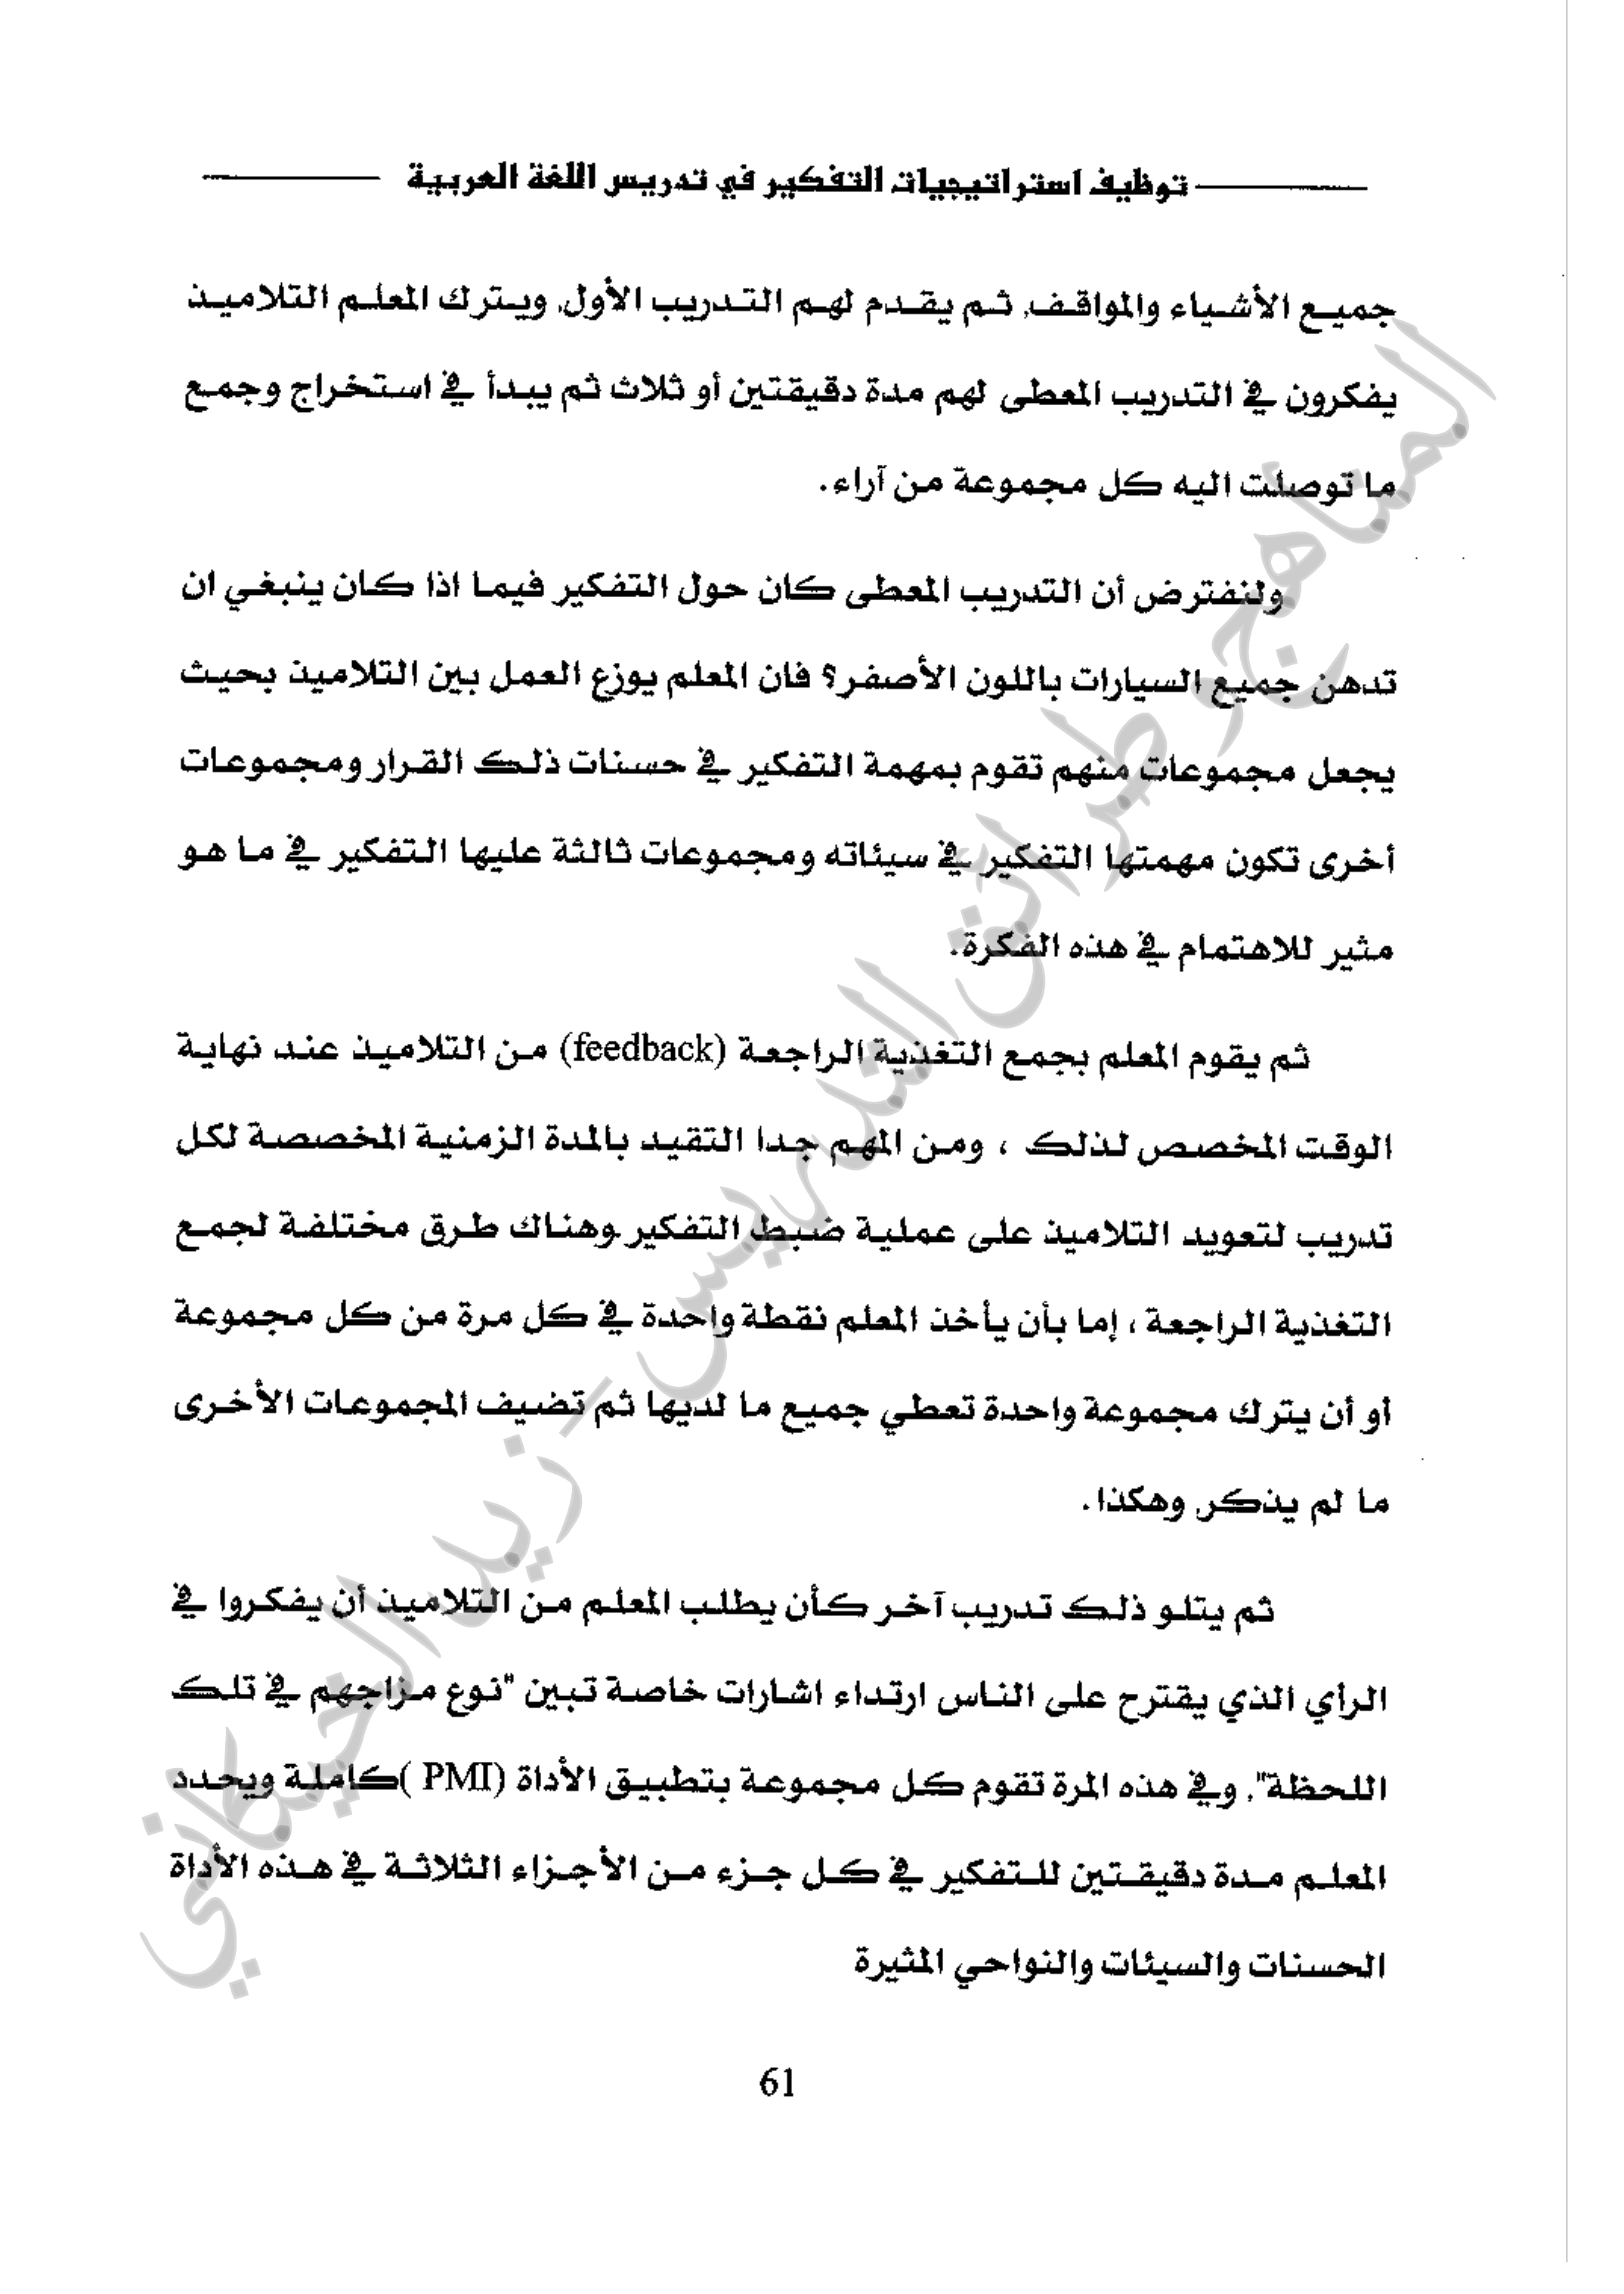 توظيف استراتيجيات التفكير في تدريس اللغة العربية
جميع الأشياء والمواقف، ثم يقدم لهم التدريب الأول، ويترك المعلم التلاميذ
يفكرون في التدريب المعطى لهم مدة دقيقتين أو ثلاث ثم يبدأ في استخراج وجمع
ما توصلت اليه كل مجموعة من آراء.
ولنفترض أن التدريب المعطى كان حول التفكير فيما اذا كان ينبغي ان
تدهن جميع السيارات باللون الأصفر؟ فان المعلم يوزع العمل بين التلاميذ بحيث
يجعل مجموعات منهم تقوم بمهمة التفكير في حسنات ذلك القرار ومجموعات
أخرى تكون مهمتها التفكير في سيئاته ومجموعات ثالثة عليها التفكير في ما هو
مثير للاهتمام في هذه الفكرة.
ثم يقوم المعلم بجمع التغذية الراجعة (feedback) من التلاميذ عند نهاية
الوقت المخصص لذلك ، ومن المهم جدا التقيد بالمدة الزمنية المخصصة لكل
تدريب لتعويد التلاميذ على عملية ضبط التفكير.وهناك طرق مختلفة لجمع
التغذية الراجعة ، إما بأن يأخذ المعلم نقطة واحدة في كل مرة من كل مجموعة
أو أن يترك مجموعة واحدة تعطي جميع ما لديها ثم تضيف المجموعات الأخرى
ما لم يذكر، وهكذا.
ثم يتلو ذلك تدريب آخر كأن يطلب المعلم من التلاميذ أن يفكروا في
الرأي الذي يقترح على الناس ارتداء اشارات خاصة تبين "نوع مزاجهم في تلك
اللحظة"، وفي هذه المرة تقوم كل مجموعة بتطبيق الأداة (PMI )كاملة ويحدد
المعلم مدة دقيقتين للتفكير في كل جزء من الأجزاء الثلاثة في هذه الأداة
الحسنات والسيئات والنواحي المثيرة
61
المناهج وطرائق التدريس - زيد الخيكاني